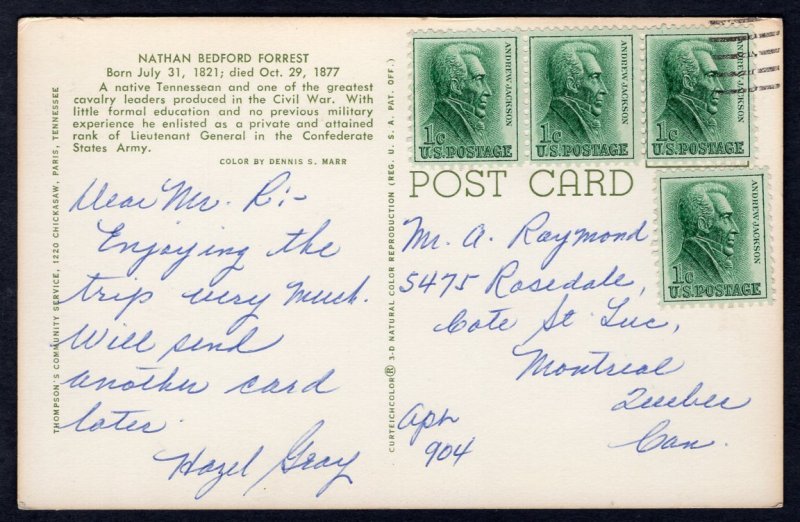 NATHAN BEDFORD FORREST
Born July 31, 1821; died Oct. 29, 1877
A native Tennessean and one of the greatest
cavalry leaders produced in the Civil War. With
little formal education and no previous military
experience he enlisted as a private and attained
rank of Lieutenant General in the Confederate
States Army.
COLOR BY DENNIS S. MARR
THOMPSON'S COMMUNITY SERVICE, 1220 CHICKASAW, PARIS, TENNESSEE
Dear Mr. R:-
Enjoying the
trip very much.
Will send
another card
later.
Hazel Gray
CURTEICHCOLOR® 3-D NATURAL COLOR REPRODUCTION (REG. U. S. A. PAT. OFF.)
ANDREW JACKSON
1c
U.S. POSTAGE
ANDREW JACKSON
1c
U.S. POSTAGE
ANDREW JACKSON
1c
U.S. POSTAGE
POST CARD
ANDREW JACKSON
1c
U.S. POSTAGE
Mr. A. Raymond
5475 Rosedale,
Cote St Luc,
Montreal
Quebec
Can.
Aph
904